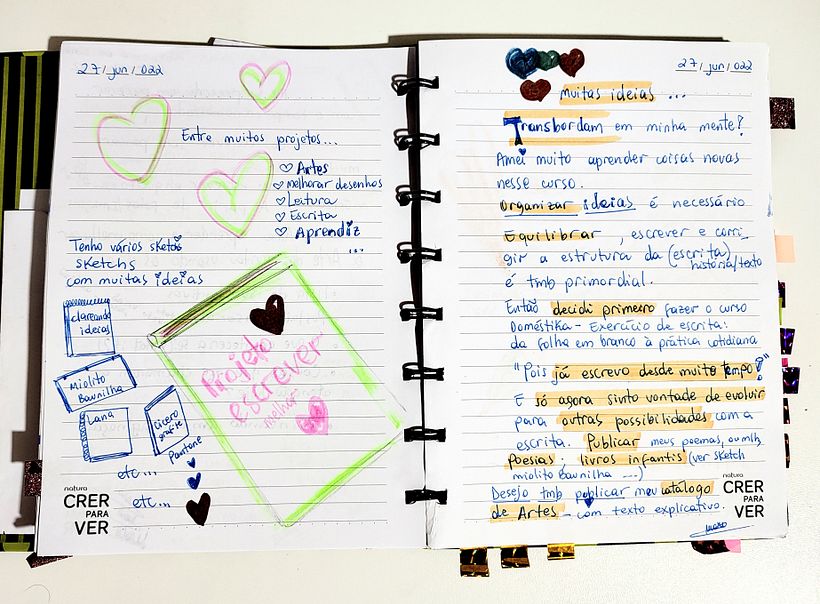 27/jun/022
Entre muitos projetos...
Artes
melhorar desenhos
Leitura
Escrita
Aprendiz
...
Tenho vários
sketchs
com muitas ideias
clareando
ideias
Miolito
Baunilha
Lana
Pantone
etc...
etc...
Projeto
escrever
melhor
natura
CRER
PARA
VER
27/jun/022
muitas ideias...
Transbordam em minha mente!
Amei muito aprender coisas novas
nesse curso.
Organizar ideias é necessário
Equilibrar, escrever e corri-
gir a estrutura da (escrita)
história/texto
é tmb primordial.
Então decidi primeiro fazer o curso
Doméstika - Exercício de escrita:
da folha em branco à prática cotidiana
"Pois já escrevo desde muito tempo!"
E só agora sinto vontade de evoluir
para outras possibilidades com a
escrita. Publicar meus poemas, ou mlh,
Poesias; livros infantis (ver sketch
miolito Baunilha ...)
Desejo tmb publicar meu catálogo
de Artes - com texto explicativo.
natura
CRER
PARA
VER